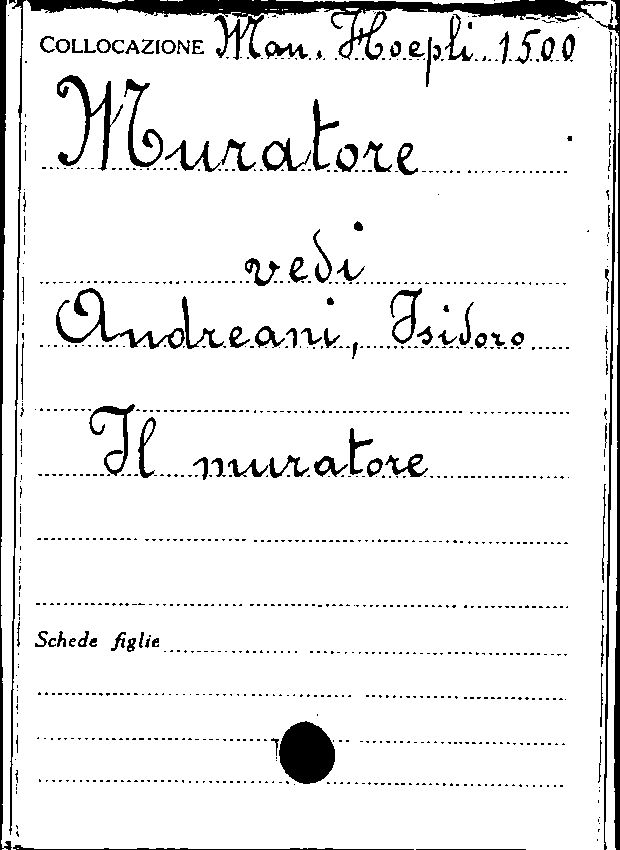 COLLOCAZIONE Man. Hoepli 1500
Muratore
vedi
Andreani, Isidoro
Il muratore
Schede figlie